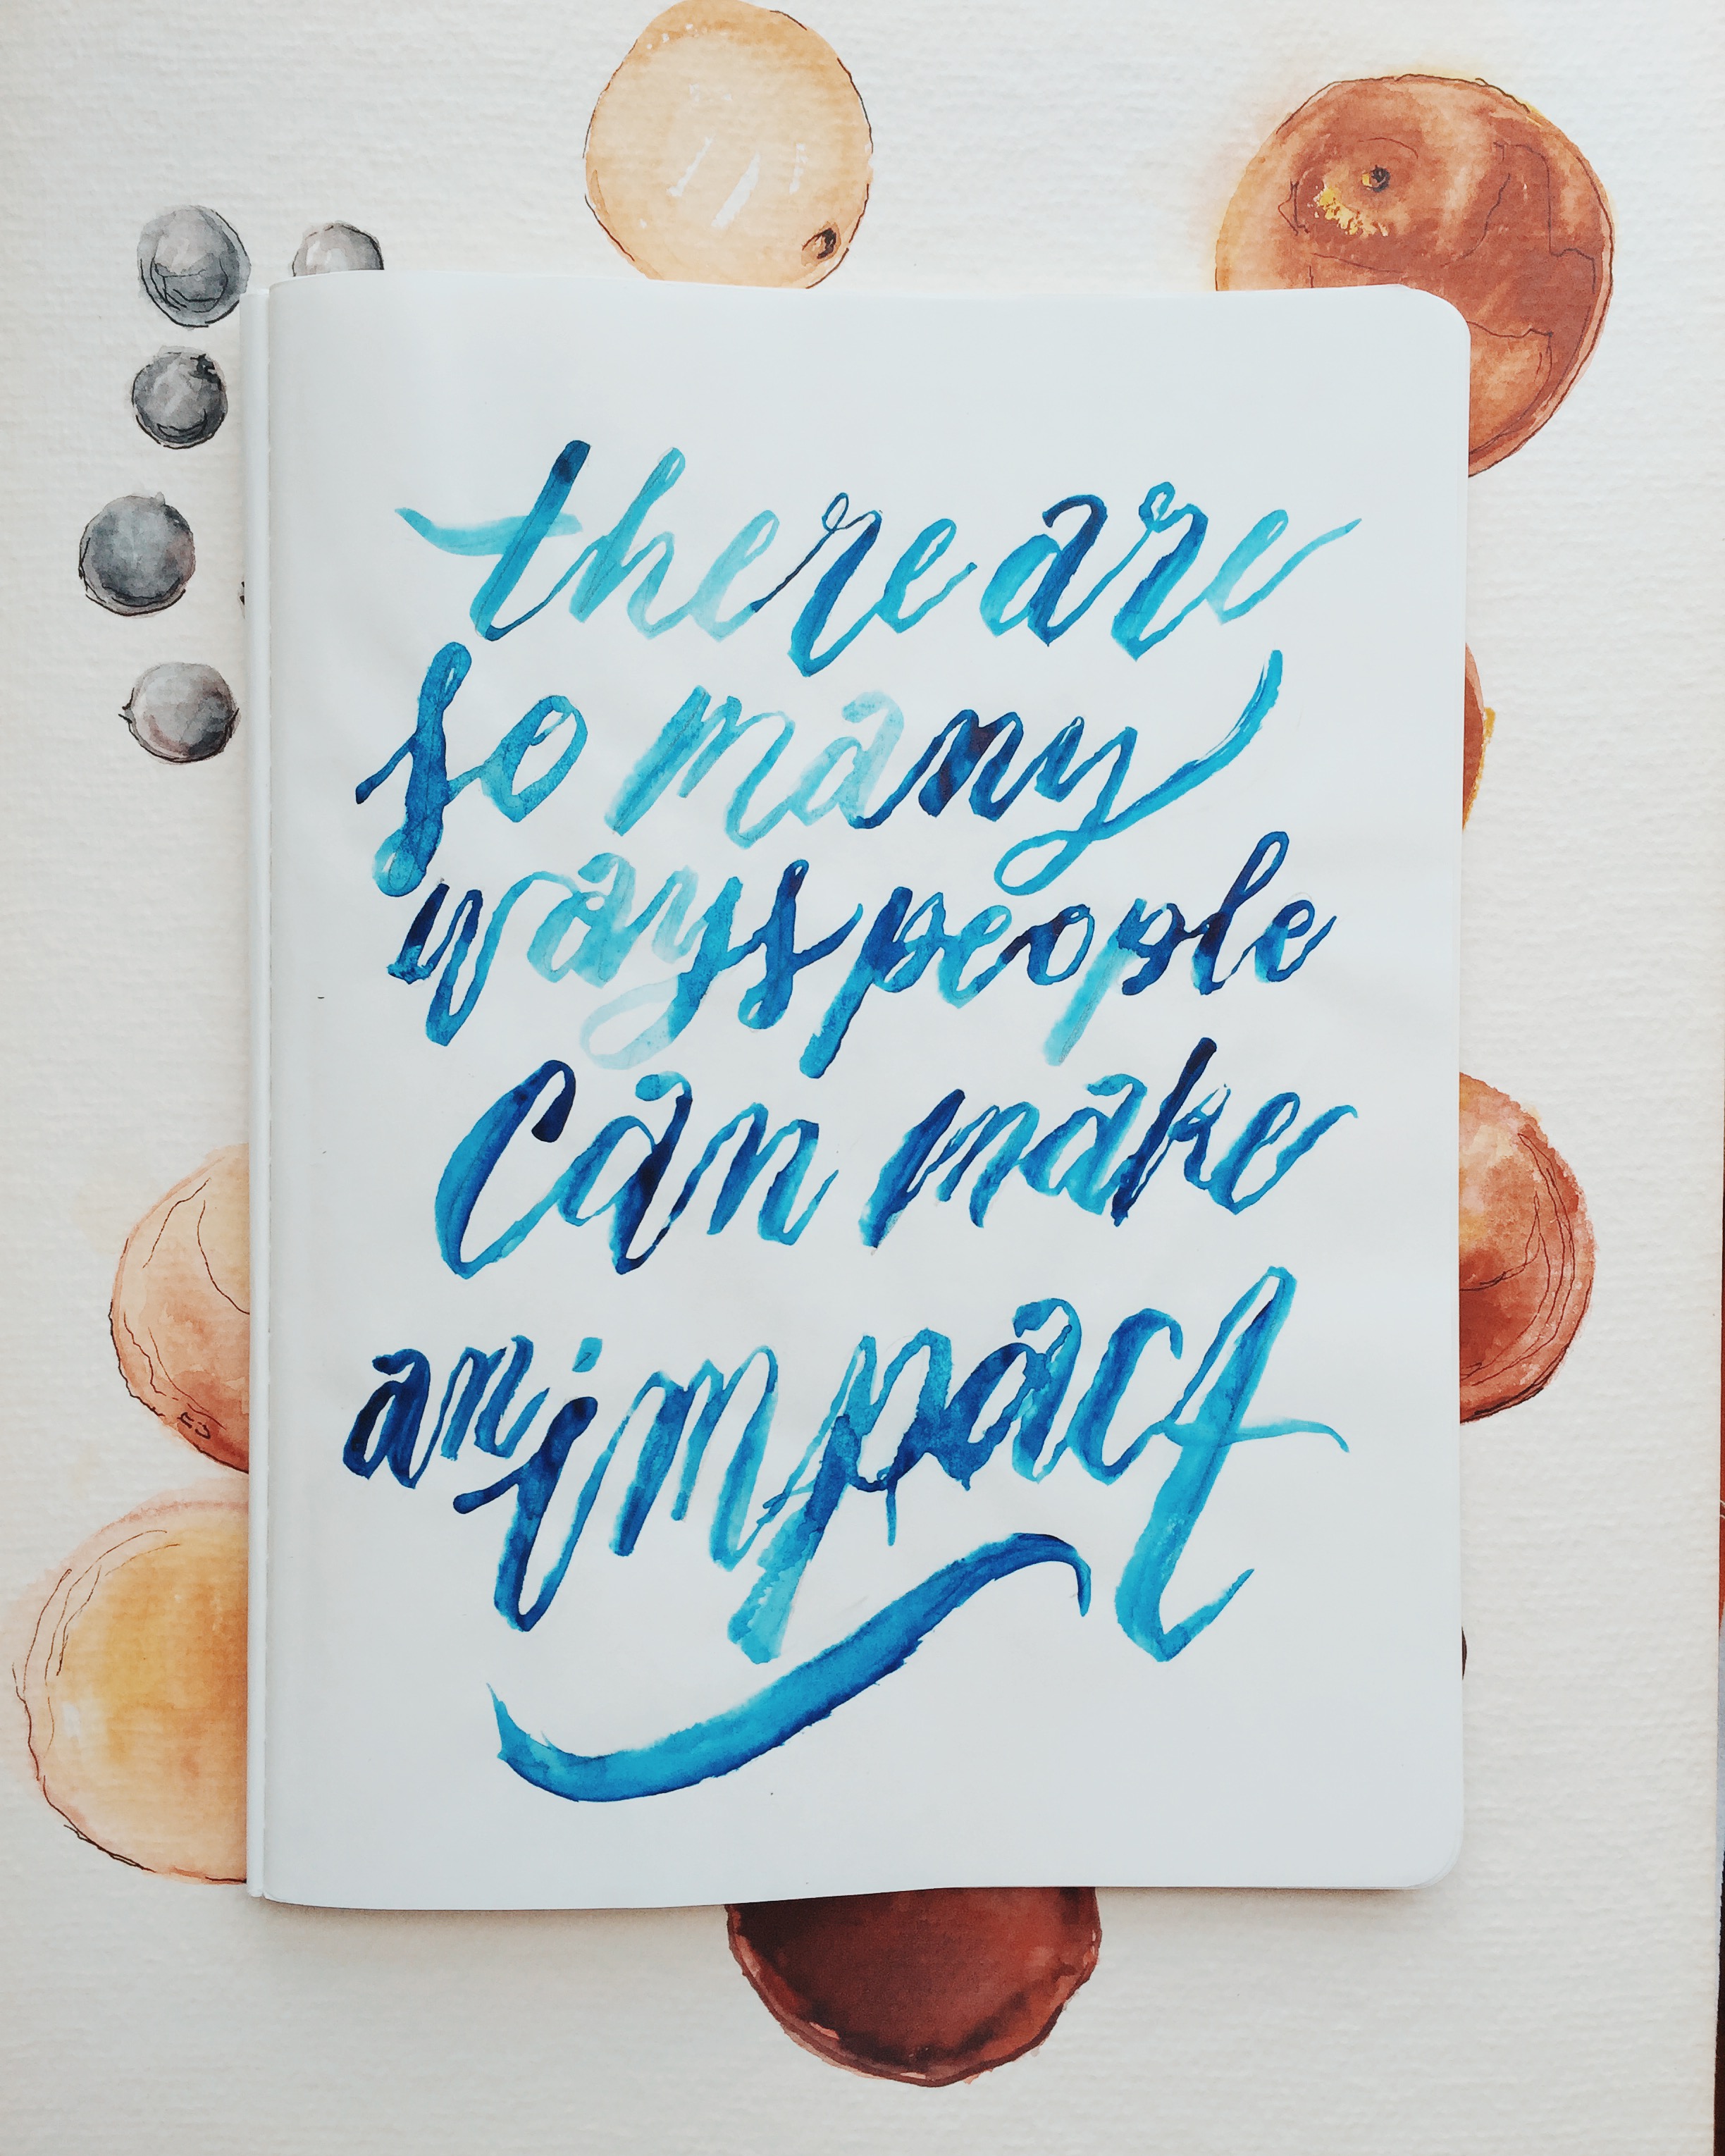 there are
so many
ways people
can make
an impact